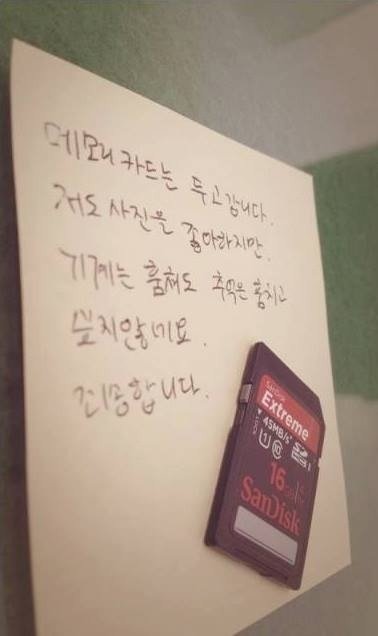 메모리 카드는 두고갑니다.
저도 사진을 좋아하지만,
기계는 훔쳐도 추억은 훔치고
싶지않네요.
죄송합니다.
SanDisk
Extreme
45MB/s
SD HC I
U1 10
16 GB
SanDisk